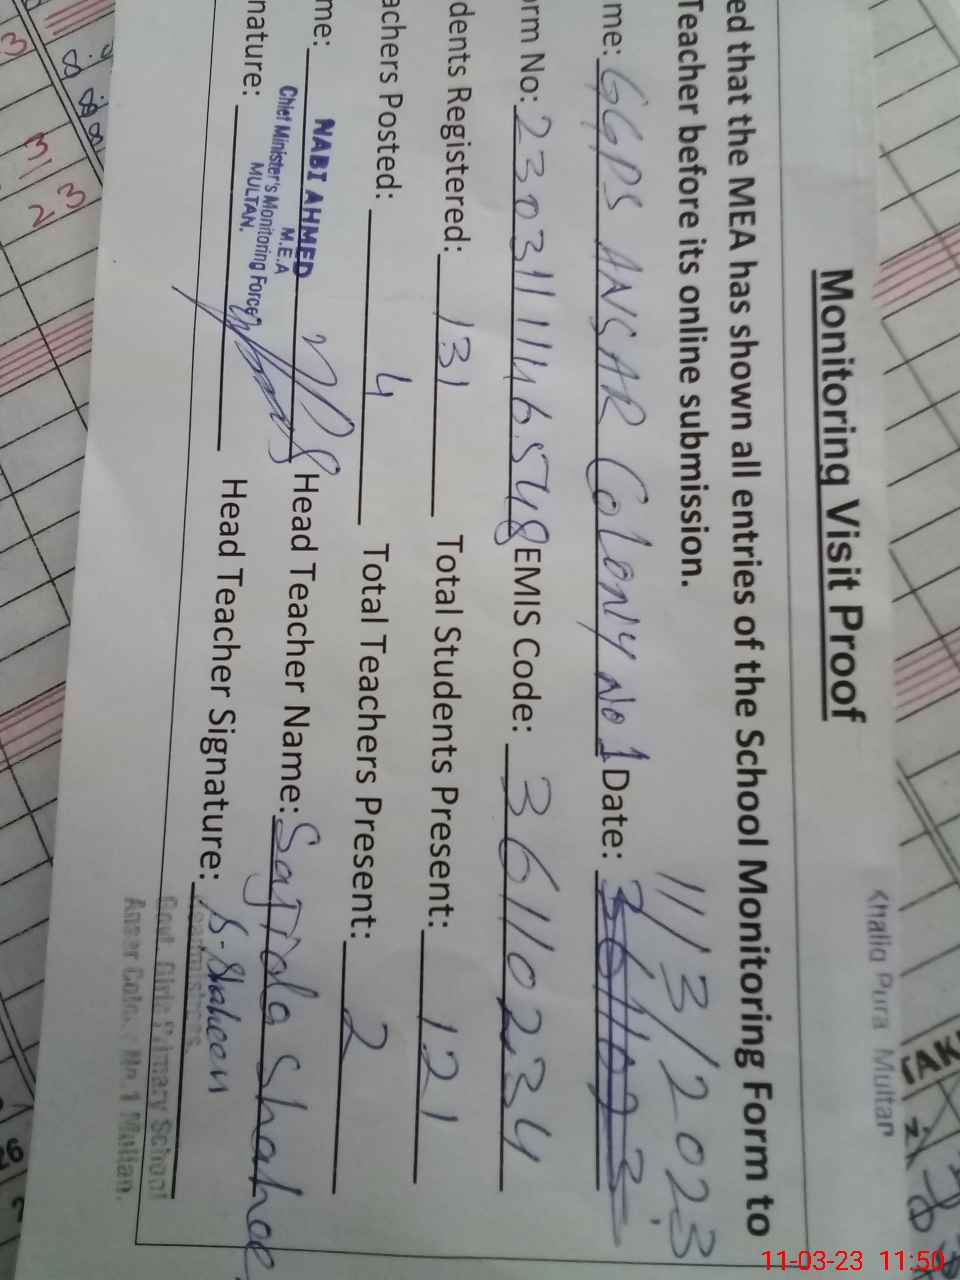 Khaliq Pura Multan
Monitoring Visit Proof
ed that the MEA has shown all entries of the School Monitoring Form to
Teacher before its online submission.
me: GGPS ANSAR Colony No 1 Date: 11/3/2023
orm No: 23031111146548 EMIS Code: 36110234
dents Registered: 131 Total Students Present: 121
achers Posted: 4 Total Teachers Present: 2
me: Head Teacher Name: Sajida Shahee
NABI AHMED
M.E.A
Chief Minister's Monitoring Force
MULTAN.
nature: Head Teacher Signature: S. Shaheen
Headmistress
Govt. Girls Primary School
Ansar Colony No.1 Multan.
TAK
11-03-23 11:50